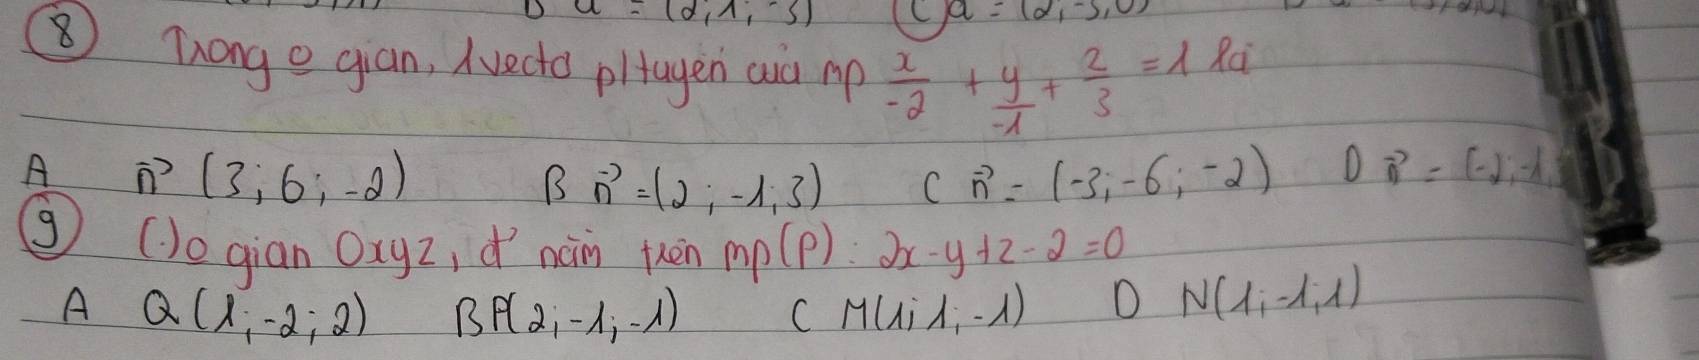 B a⃗ = (2;1;-3) C a⃗ = (2;-3;0)
8 Trong o gian, 1 vectơ pltuyến của mp x/-2 + y/-1 + z/3 = 1 là
A n⃗ (3; 6; -2) B n⃗ = (2; -1; 3) C n⃗ = (-3; -6; -2) D n⃗ = (-2; -1;
9 (.) o gian Oxyz, đ' nằm trên mp(P): 2x - y + z - 2 = 0
A Q(1; -2; 2) B P(2; -1; -1) C M(1; 1; -1) D N(1; -1; 1)